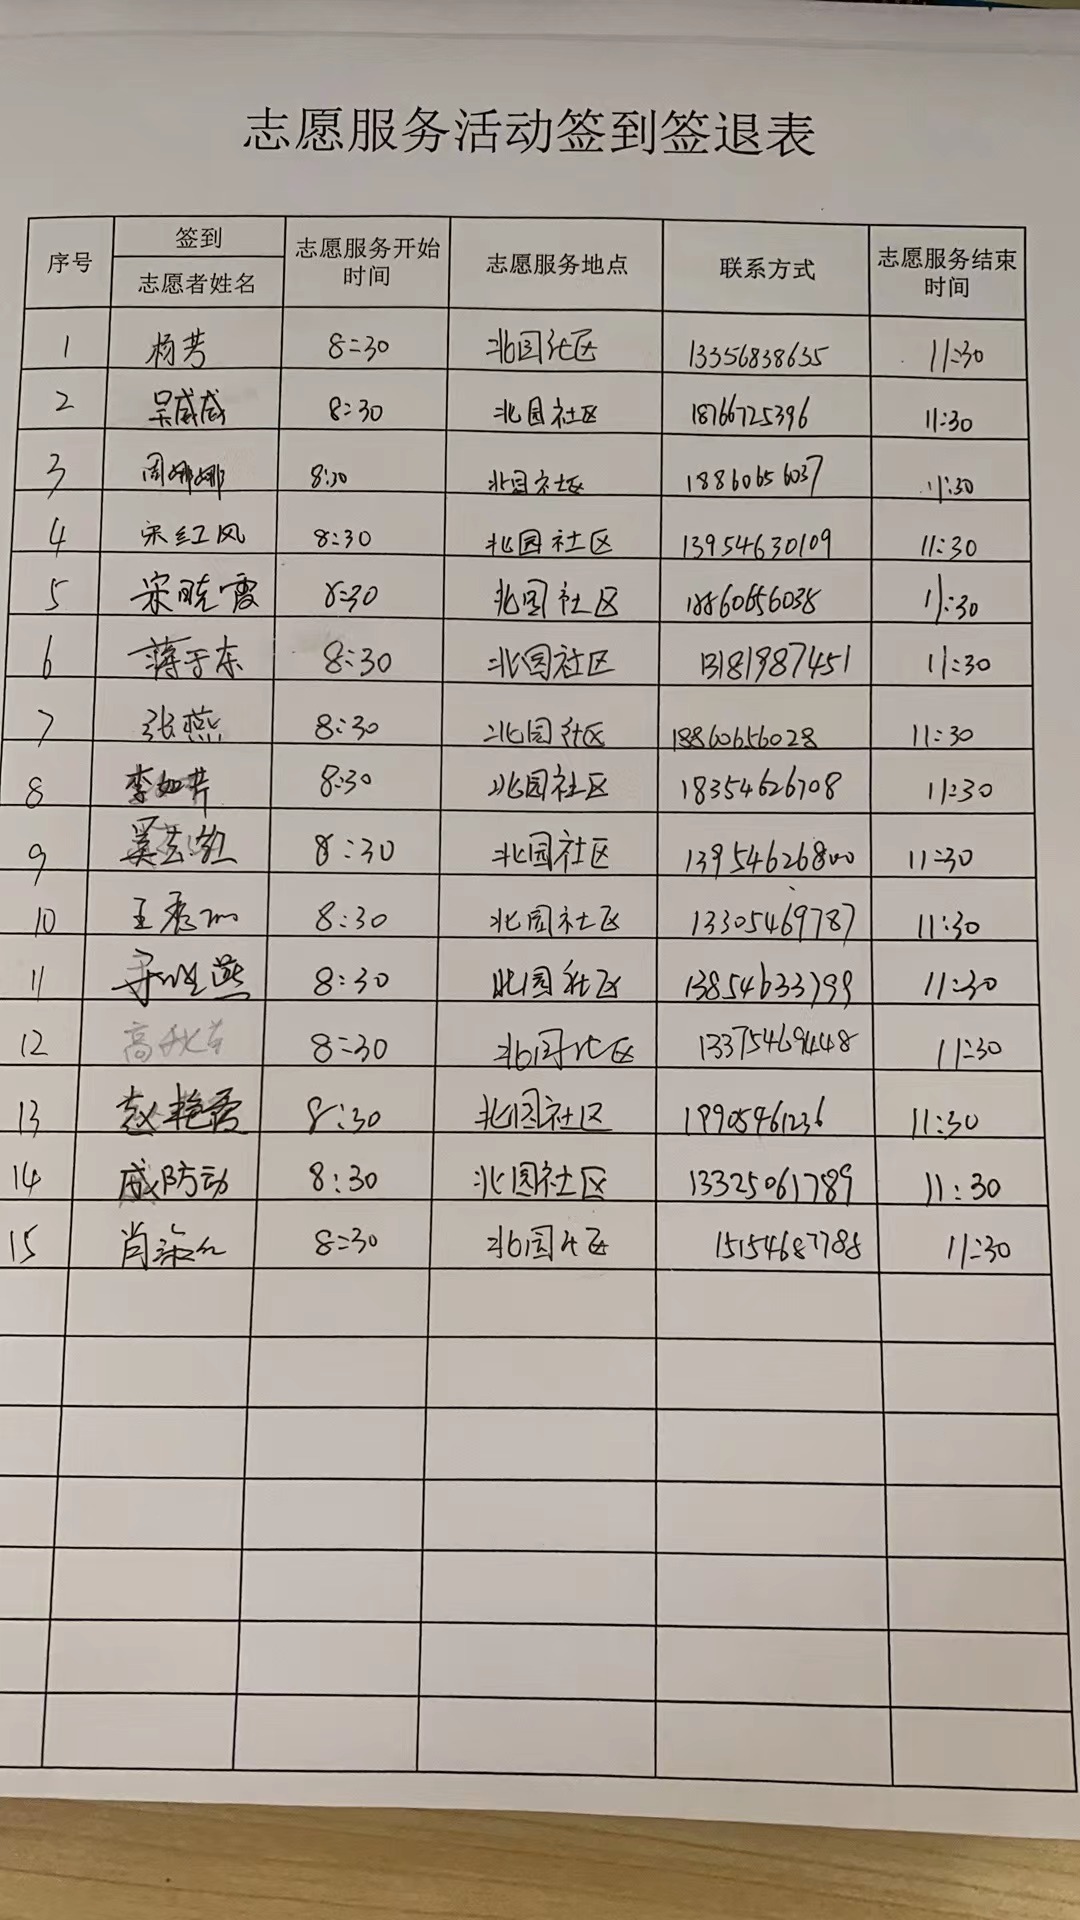 志愿服务活动签到签退表
序号 签到 志愿者姓名 志愿服务开始时间 志愿服务地点 联系方式 志愿服务结束时间
1 杨芳 8:30 北园社区 13356838635 11:30
2 吴威威 8:30 北园社区 18766725396 11:30
3 周娜娜 8:30 北园社区 18860656037 11:30
4 宋红风 8:30 北园社区 13954630109 11:30
5 宋晓霞 8:30 北园社区 18860656038 11:30
6 蒋于东 8:30 北园社区 13181987451 11:30
7 张燕 8:30 北园社区 18860656028 11:30
8 李如芹 8:30 北园社区 18354626708 11:30
9 8:30 北园社区 13954626800 11:30
10 王秀 8:30 北园社区 13305469787 11:30
11 燕 8:30 北园社区 13854633799 11:30
12 高秋 8:30 北园社区 13375469448 11:30
13 赵艳霞 8:30 北园社区 19905461236 11:30
14 成防动 8:30 北园社区 13325061789 11:30
15 肖 8:30 北园社区 15154687788 11:30